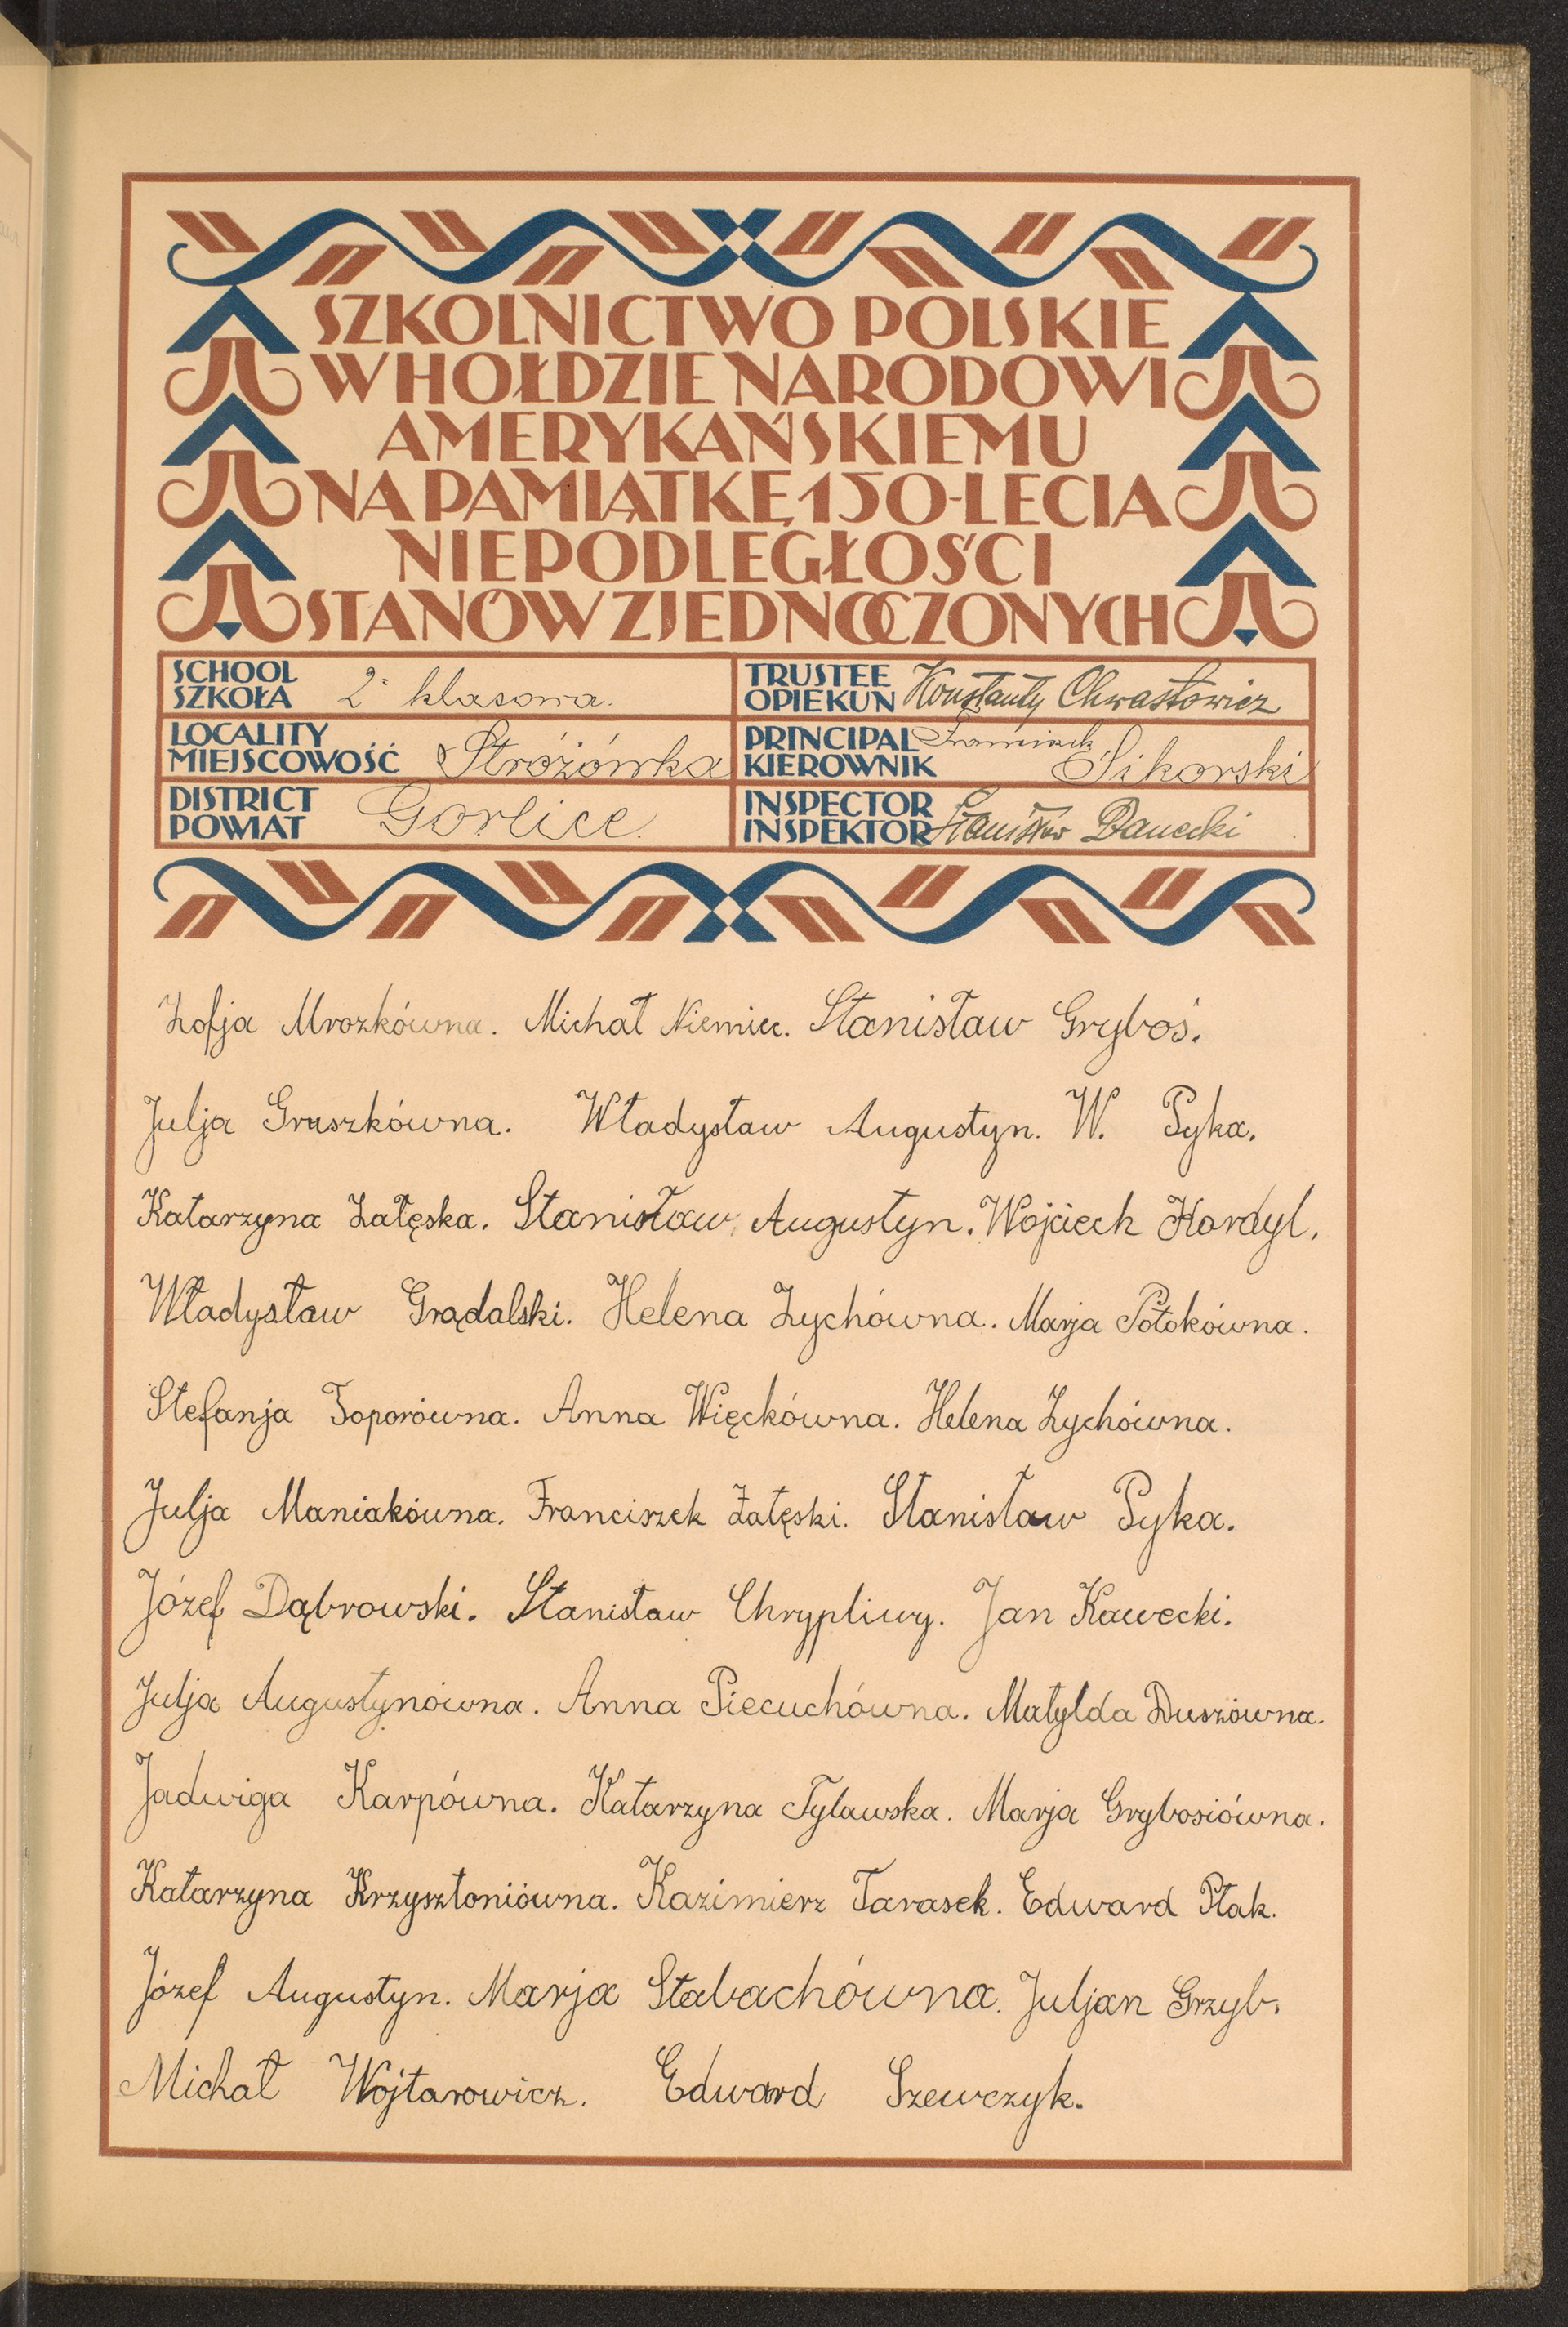 SZKOLNICTWO POLSKIE
W HOŁDZIE NARODOWI
AMERYKAŃSKIEMU
NA PAMIĄTKĘ 150-LECIA
NIEPODLEGŁOŚCI
STANÓW ZJEDNOCZONYCH
SCHOOL
SZKOŁA 2 klasowa.
TRUSTEE
OPIEKUN Konstanty Chwastowicz
LOCALITY
MIEJSCOWOŚĆ Stróżówka
PRINCIPAL Franciszek
KIEROWNIK Sikorski
DISTRICT
POWIAT Gorlice.
INSPECTOR
INSPEKTOR Stanisław Danecki
Zofja Mrozkówna. Michał Niemiec. Stanisław Gryboś.
Julja Gruszkówna. Władysław Augustyn. W. Pyka.
Katarzyna Załęska. Stanisław Augustyn. Wojciech Kordyl.
Władysław Grądalski. Helena Zychówna. Marja Potokówna.
Stefanja Toporówna. Anna Więckówna. Helena Zychówna.
Julja Maniakówna. Franciszek Załęski. Stanisław Pyka.
Józef Dąbrowski. Stanisław Chrypliwy. Jan Kawecki.
Julja Augustynówna. Anna Piecuchówna. Matylda Duszówna.
Jadwiga Karpówna. Katarzyna Tylawska. Marja Grybosiówna.
Katarzyna Krzysztoniówna. Kazimierz Tarasek. Edward Ptak.
Józef Augustyn. Marja Stabachówna. Juljan Grzyb.
Michał Wojtarowicz. Edward Szewczyk.